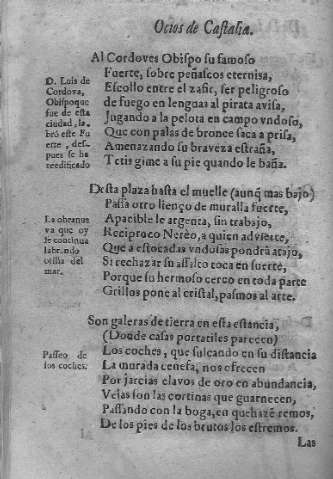 Ocios de Castalia.
Al Cordoves Obispo su famoso
Fuerte, sobre peñascos eternisa,
Escollo entre el zafir, ser peligroso
de fuego en lenguas al pirata avisa,
Jugando a la pelota en campo vndoso,
Que con palas de bronce saca a prisa,
Amenazando su braveza estraña,
Tetis gime a su pie quando le baña.
D. Luis de
Cordova,
Obispo que
fue de esta
ciudad, la-
bró este Fu
erte, des-
pues se ha
reedificado
Desta plaza hasta el muelle (aunq̃ mas bajo)
Passa otro lienço de muralla fuerte,
Apacible le argenta, sin trabajo,
Reciproco Nereo, a quien advierte,
Que a estocadas vndosas pondrà atajo,
Si rechazar su assalto toca en suerte,
Porque su hermoso cerco en toda parte
Grillos pone al cristal, pasmos al arte.
La obra nue
va que oy
se continua
labrando
orilla del
mar.
Son galeras de tierra en esta estancia,
(Donde casas portatiles parecen)
Los coches, que sulcando en su distancia
La murada cenefa, nos ofrecen
Por jarcias clavos de oro en abundancia,
Velas son las cortinas que guarnecen,
Passando con la boga, en que hazẽ remos,
De los pies de los brutos los estremos.
Passeo de
los coches.
Las